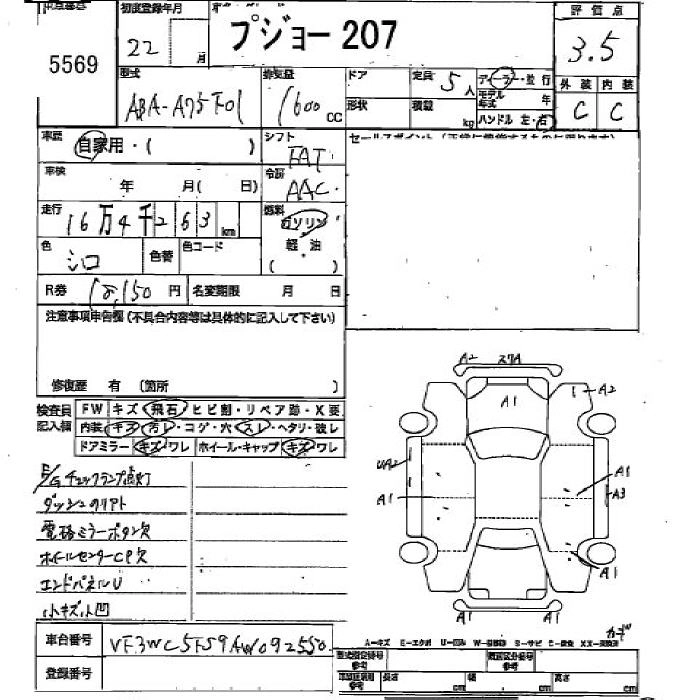 5569
初度登録年月
22 月
プジョー 207
評価点
3.5
型式
ABA-A75F01
排気量
1600 cc
ドア
形状
定員 5 人
積載 kg
ディーラー・並行
モデル年式 年
ハンドル 左・右
外装 内装
C C
車歴
自家用・( )
シフト
FAT
車検
年 月( 日)
冷房
AAC
走行
16万4千263 km
燃料
ガソリン・
軽油
( )
色
シロ
色替
色コード
R券 18,150 円
名変期限 月 日
注意事項申告欄(不具合内容等は具体的に記入して下さい)
修復歴 有 (箇所 )
検査員記入欄
FW キズ・飛石・ヒビ割・リペア跡・X要
内装・キズ・汚レ・コゲ・穴・スレ・ヘタリ・破レ
ドアミラー・キズ・ワレ ホイール・キャップ・キズ・ワレ
E/Gチェックランプ点灯
電格ミラーボタン欠
ホイールセンターCP欠
エンドパネルU
小キズ小凹
A2
A1
A2
UA2
A1
A1
A3
A1
A1
A1
車台番号 VF3WC5FS9AW092550
登録番号
A=キズ
型式指定番号 参考
類別区分番号 参考
長さ cm
幅 cm
高さ cm